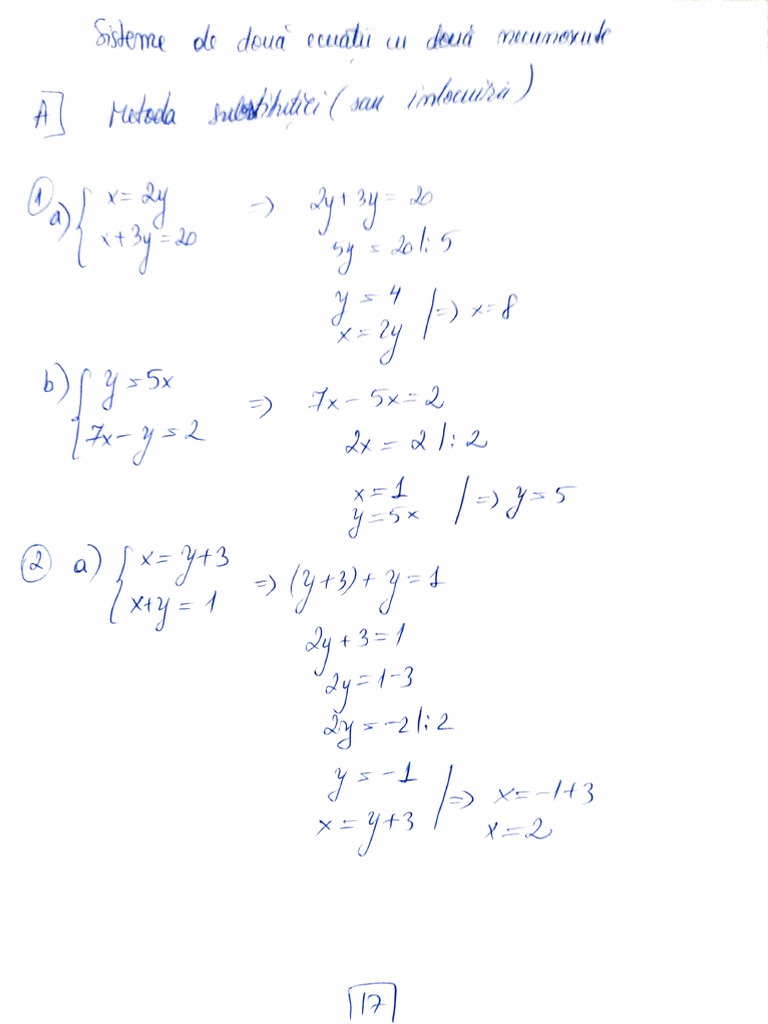 Sisteme de două ecuații cu două necunoscute
A] Metoda substituției (sau înlocuirii)
① a) { x = 2y => 2y + 3y = 20
x + 3y = 20 5y = 20 |: 5
y = 4
x = 2y |=> x = 8
b) { y = 5x => 7x - 5x = 2
7x - y = 2 2x = 2 |: 2
x = 1
y = 5x |=> y = 5
② a) { x = y + 3 => (y + 3) + y = 1
x + y = 1
2y + 3 = 1
2y = 1 - 3
2y = -2 |: 2
y = -1 |=> x = -1 + 3
x = y + 3 x = 2
17